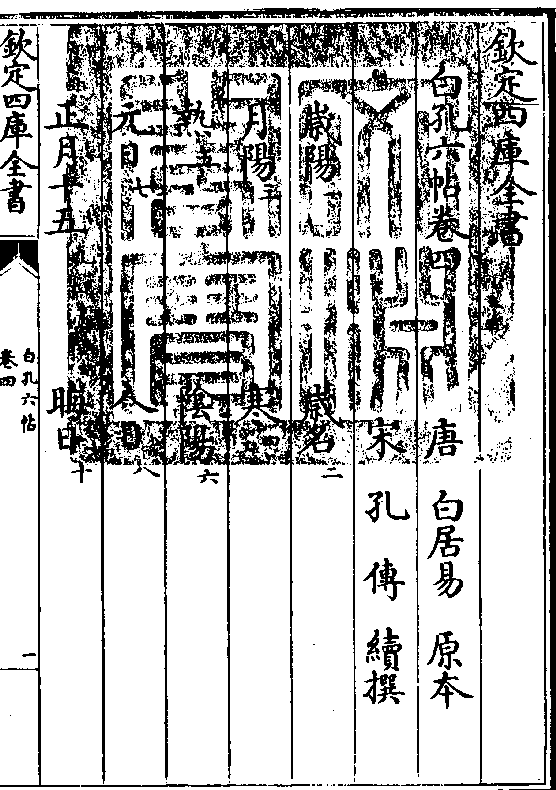 欽定四庫全書
白孔六帖卷四 唐 白居易 原本
宋 孔傳 續撰
歲陽一 歲名二
月陽三 寒四
熱五 陰陽六
元日七 人日八
正月十五九 晦日十
欽定四庫全書
白孔六帖
卷四
一
文淵閣寶